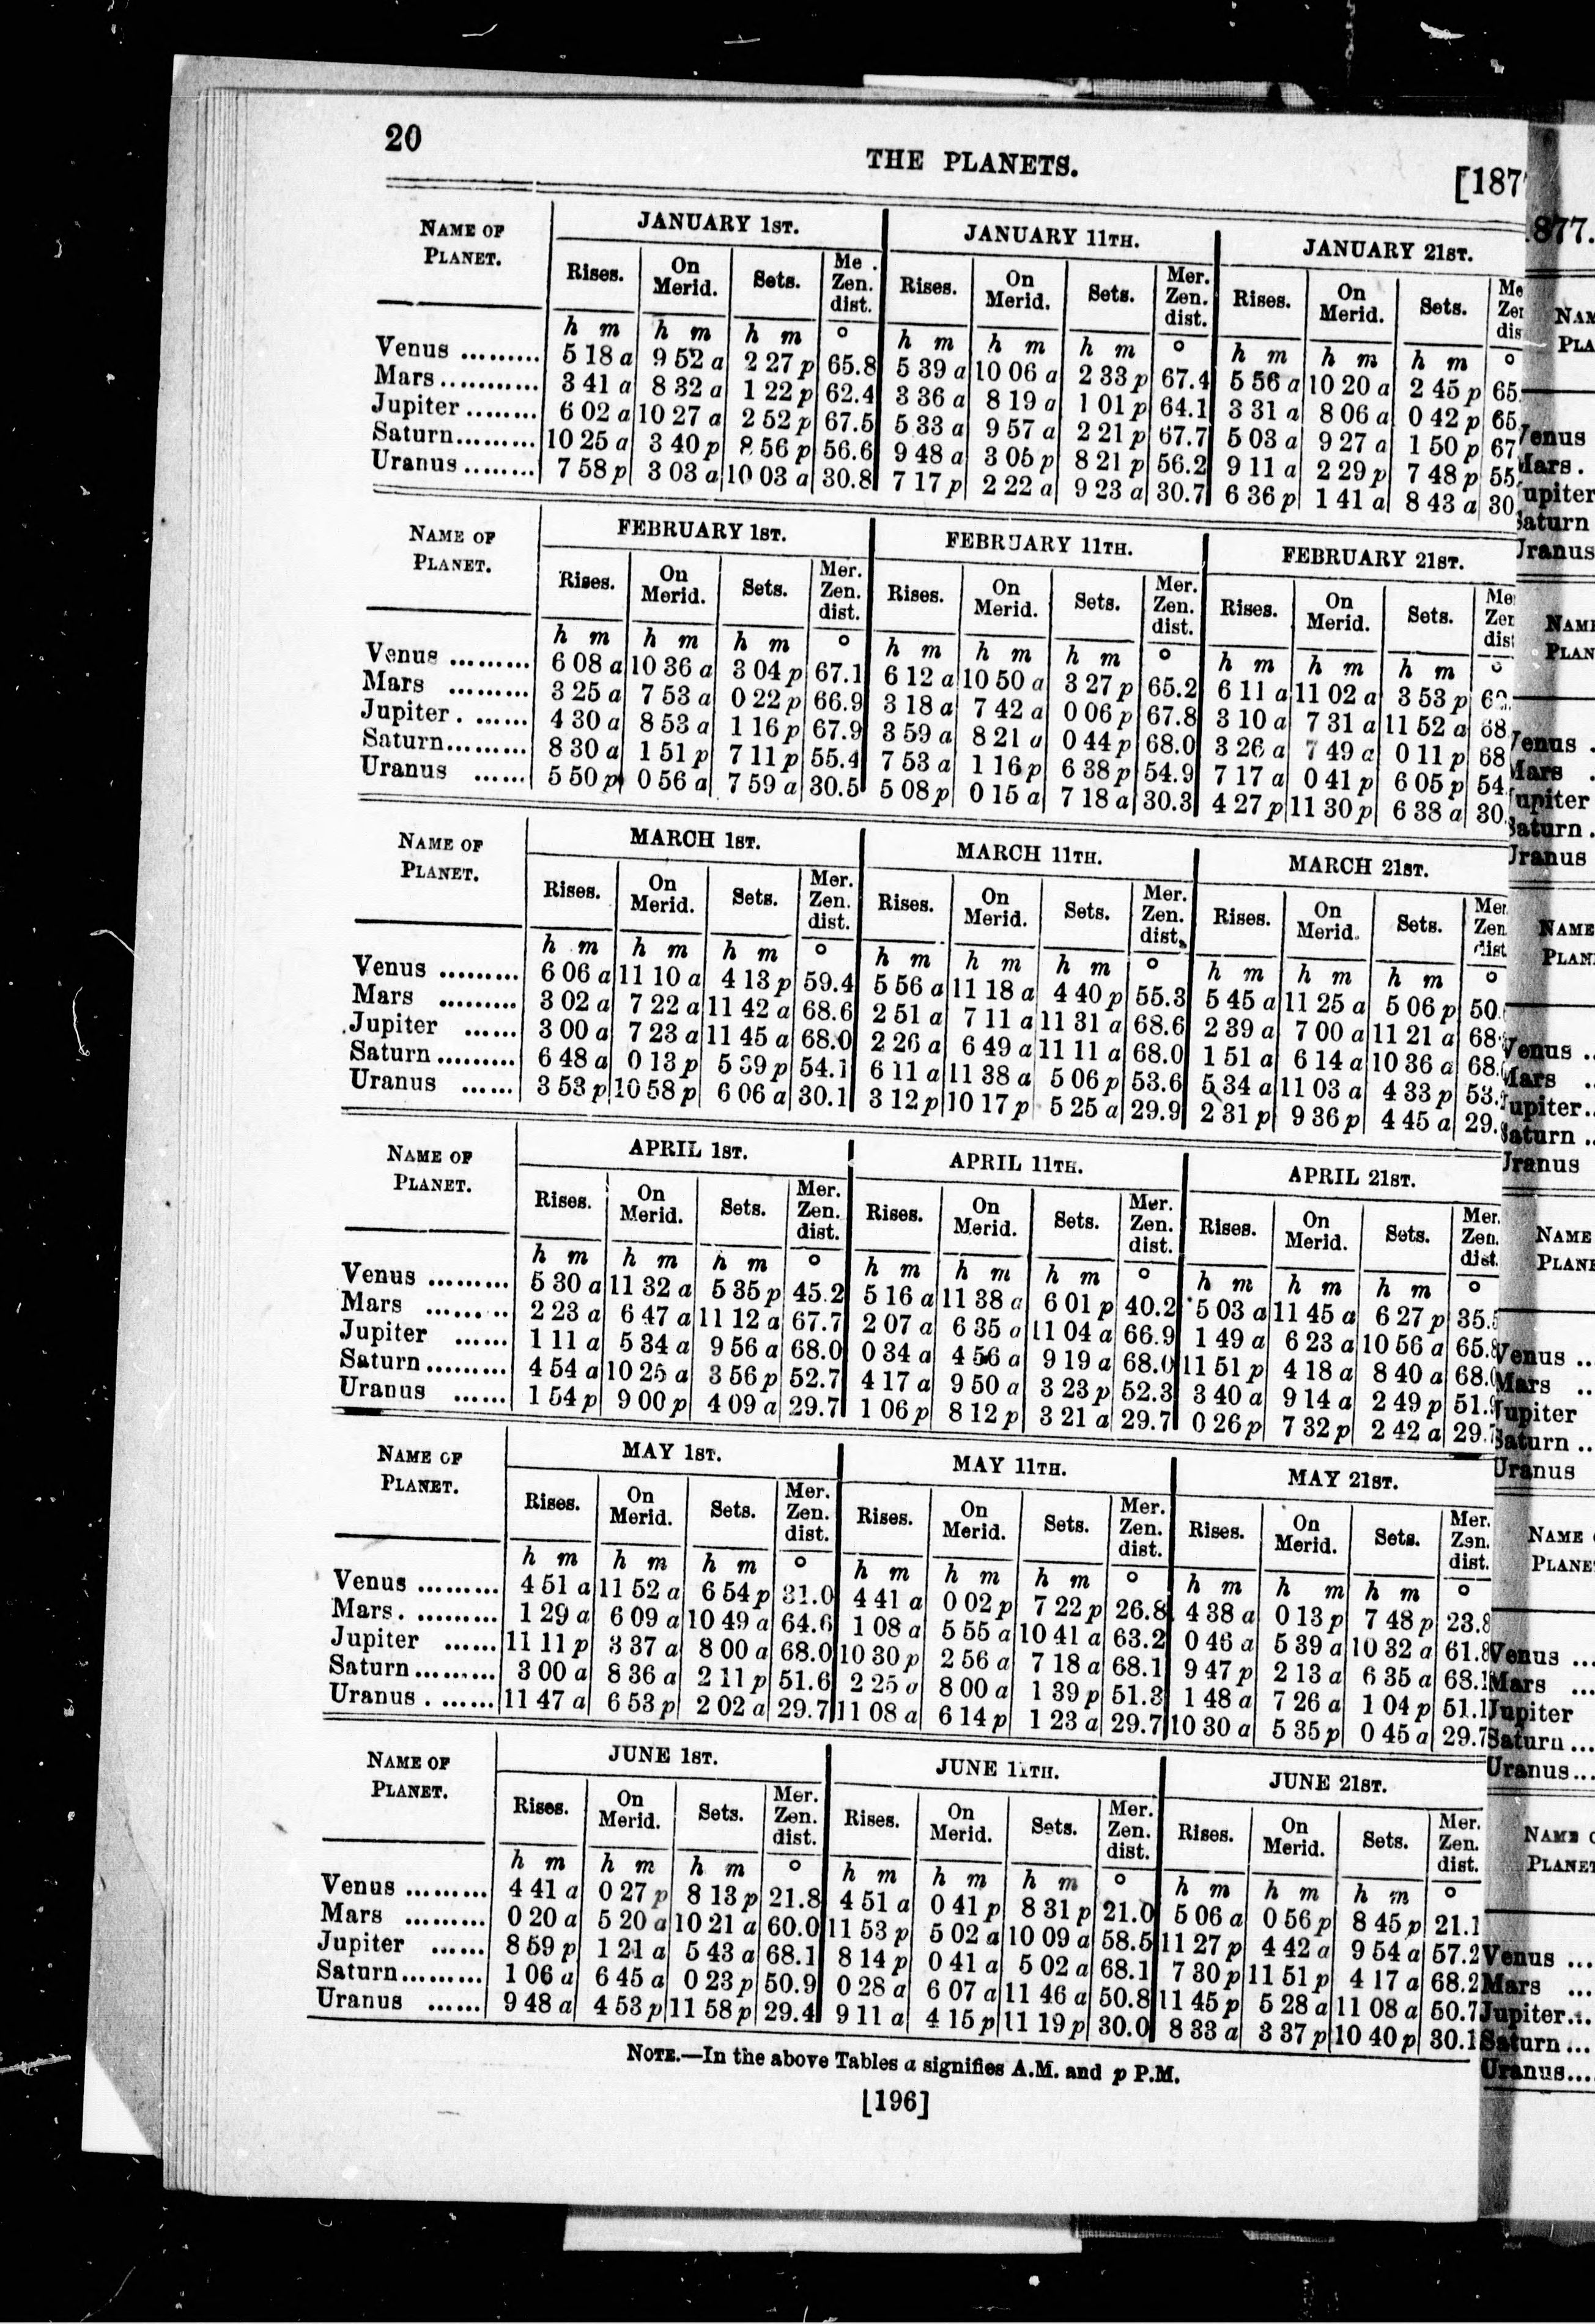 20
THE PLANETS.
[187
NAME OF PLANET. JANUARY 1ST. JANUARY 11TH. JANUARY 21ST.
Rises. On Merid. Sets. Me . Zen. dist. Rises. On Merid. Sets. Mer. Zen. dist. Rises. On Merid. Sets. Me Zen dis
h m h m h m o h m h m h m o h m h m h m o
Venus ......... 5 18 a 9 52 a 2 27 p 65.8 5 39 a 10 06 a 2 33 p 67.4 5 56 a 10 20 a 2 45 p 65.
Mars........... 3 41 a 8 32 a 1 22 p 62.4 3 36 a 8 19 a 1 01 p 64.1 3 31 a 8 06 a 0 42 p 65
Jupiter ........ 6 02 a 10 27 a 2 52 p 67.5 5 33 a 9 57 a 2 21 p 67.7 5 03 a 9 27 a 1 50 p 67
Saturn......... 10 25 a 3 40 p 8 56 p 56.6 9 48 a 3 05 p 8 21 p 56.2 9 11 a 2 29 p 7 48 p 55
Uranus ........ 7 58 p 3 03 a 10 03 a 30.8 7 17 p 2 22 a 9 23 a 30.7 6 36 p 1 41 a 8 43 a 30
NAME OF PLANET. FEBRUARY 1ST. FEBRUARY 11TH. FEBRUARY 21ST.
Rises. On Merid. Sets. Mer. Zen. dist. Rises. On Merid. Sets. Mer. Zen. dist. Rises. On Merid. Sets. Me Zer dist
h m h m h m o h m h m h m o h m h m h m o
Venus ......... 6 08 a 10 36 a 3 04 p 67.1 6 12 a 10 50 a 3 27 p 65.2 6 11 a 11 02 a 3 53 p
Mars ......... 3 25 a 7 53 a 0 22 p 66.9 3 18 a 7 42 a 0 06 p 67.8 3 10 a 7 31 a 11 52 a 68
Jupiter. ....... 4 30 a 8 53 a 1 16 p 67.9 3 59 a 8 21 a 0 44 p 68.0 3 26 a 7 49 a 0 11 p 68
Saturn......... 8 30 a 1 51 p 7 11 p 55.4 7 53 a 1 16 p 6 38 p 54.9 7 17 a 0 41 p 6 05 p 54
Uranus ...... 5 50 p 0 56 a 7 59 a 30.5 5 08 p 0 15 a 7 18 a 30.3 4 27 p 11 30 p 6 38 a 30
NAME OF PLANET. MARCH 1ST. MARCH 11TH. MARCH 21ST.
Rises. On Merid. Sets. Mer. Zen. dist. Rises. On Merid. Sets. Mer. Zen. dist. Rises. On Merid. Sets. Mer Zen dist
h m h m h m o h m h m h m o h m h m h m o
Venus ......... 6 06 a 11 10 a 4 13 p 59.4 5 56 a 11 18 a 4 40 p 55.3 5 45 a 11 25 a 5 06 p 50.
Mars ......... 3 02 a 7 22 a 11 42 a 68.6 2 51 a 7 11 a 11 31 a 68.6 2 39 a 7 00 a 11 21 a 68
Jupiter ...... 3 00 a 7 23 a 11 45 a 68.0 2 26 a 6 49 a 11 11 a 68.0 1 51 a 6 14 a 10 36 a 68.
Saturn ......... 6 48 a 0 13 p 5 39 p 54.1 6 11 a 11 38 a 5 06 p 53.6 5 34 a 11 03 a 4 33 p 53.
Uranus ...... 3 53 p 10 58 p 6 06 a 30.1 3 12 p 10 17 p 5 25 a 29.9 2 31 p 9 36 p 4 45 a 29.
NAME OF PLANET. APRIL 1ST. APRIL 11TH. APRIL 21ST.
Rises. On Merid. Sets. Mer. Zen. dist. Rises. On Merid. Sets. Mer. Zen. dist. Rises. On Merid. Sets. Mer. Zen. dist.
h m h m h m o h m h m h m o h m h m h m o
Venus ......... 5 30 a 11 32 a 5 35 p 45.2 5 16 a 11 38 a 6 01 p 40.2 5 03 a 11 45 a 6 27 p 35.5
Mars ......... 2 23 a 6 47 a 11 12 a 67.7 2 07 a 6 35 a 11 04 a 66.9 1 49 a 6 23 a 10 56 a 65.8
Jupiter ...... 1 11 a 5 34 a 9 56 a 68.0 0 34 a 4 56 a 9 19 a 68.0 11 51 p 4 18 a 8 40 a 68.0
Saturn ......... 4 54 a 10 25 a 3 56 p 52.7 4 17 a 9 50 a 3 23 p 52.3 3 40 a 9 14 a 2 49 p 51.9
Uranus ...... 1 54 p 9 00 p 4 09 a 29.7 1 06 p 8 12 p 3 21 a 29.7 0 26 p 7 32 p 2 42 a 29.7
NAME OF PLANET. MAY 1ST. MAY 11TH. MAY 21ST.
Rises. On Merid. Sets. Mer. Zen. dist. Rises. On Merid. Sets. Mer. Zen. dist. Rises. On Merid. Sets. Mer. Zen. dist.
h m h m h m o h m h m h m o h m h m h m o
Venus ......... 4 51 a 11 52 a 6 54 p 31.0 4 41 a 0 02 p 7 22 p 26.8 4 38 a 0 13 p 7 48 p 23.8
Mars. ......... 1 29 a 6 09 a 10 49 a 64.6 1 08 a 5 55 a 10 41 a 63.2 0 46 a 5 39 a 10 32 a 61.8
Jupiter ...... 11 11 p 3 37 a 8 00 a 68.0 10 30 p 2 56 a 7 18 a 68.1 9 47 p 2 13 a 6 35 a 68.1
Saturn ......... 3 00 a 8 36 a 2 11 p 51.6 2 25 a 8 00 a 1 39 p 51.3 1 48 a 7 26 a 1 04 p 51.1
Uranus . ...... 11 47 a 6 53 p 2 02 a 29.7 11 08 a 6 14 p 1 23 a 29.7 10 30 a 5 35 p 0 45 a 29.7
NAME OF PLANET. JUNE 1ST. JUNE 11TH. JUNE 21ST.
Rises. On Merid. Sets. Mer. Zen. dist. Rises. On Merid. Sets. Mer. Zen. dist. Rises. On Merid. Sets. Mer. Zen. dist.
h m h m h m o h m h m h m o h m h m h m o
Venus ......... 4 41 a 0 27 p 8 13 p 21.8 4 51 a 0 41 p 8 31 p 21.0 5 06 a 0 56 p 8 45 p 21.1
Mars ......... 0 20 a 5 20 a 10 21 a 60.0 11 53 p 5 02 a 10 09 a 58.5 11 27 p 4 42 a 9 54 a 57.2
Jupiter ...... 8 59 p 1 21 a 5 43 a 68.1 8 14 p 0 41 a 5 02 a 68.1 7 30 p 11 51 p 4 17 a 68.2
Saturn ......... 1 06 a 6 45 a 0 23 p 50.9 0 28 a 6 07 a 11 46 a 50.8 11 45 p 5 28 a 11 08 a 50.7
Uranus ...... 9 48 a 4 53 p 11 58 p 29.4 9 11 a 4 15 p 11 19 p 30.0 8 33 a 3 37 p 10 40 p 30.1
NOTE.—In the above Tables a signifies A.M. and p P.M.
[196]
877.